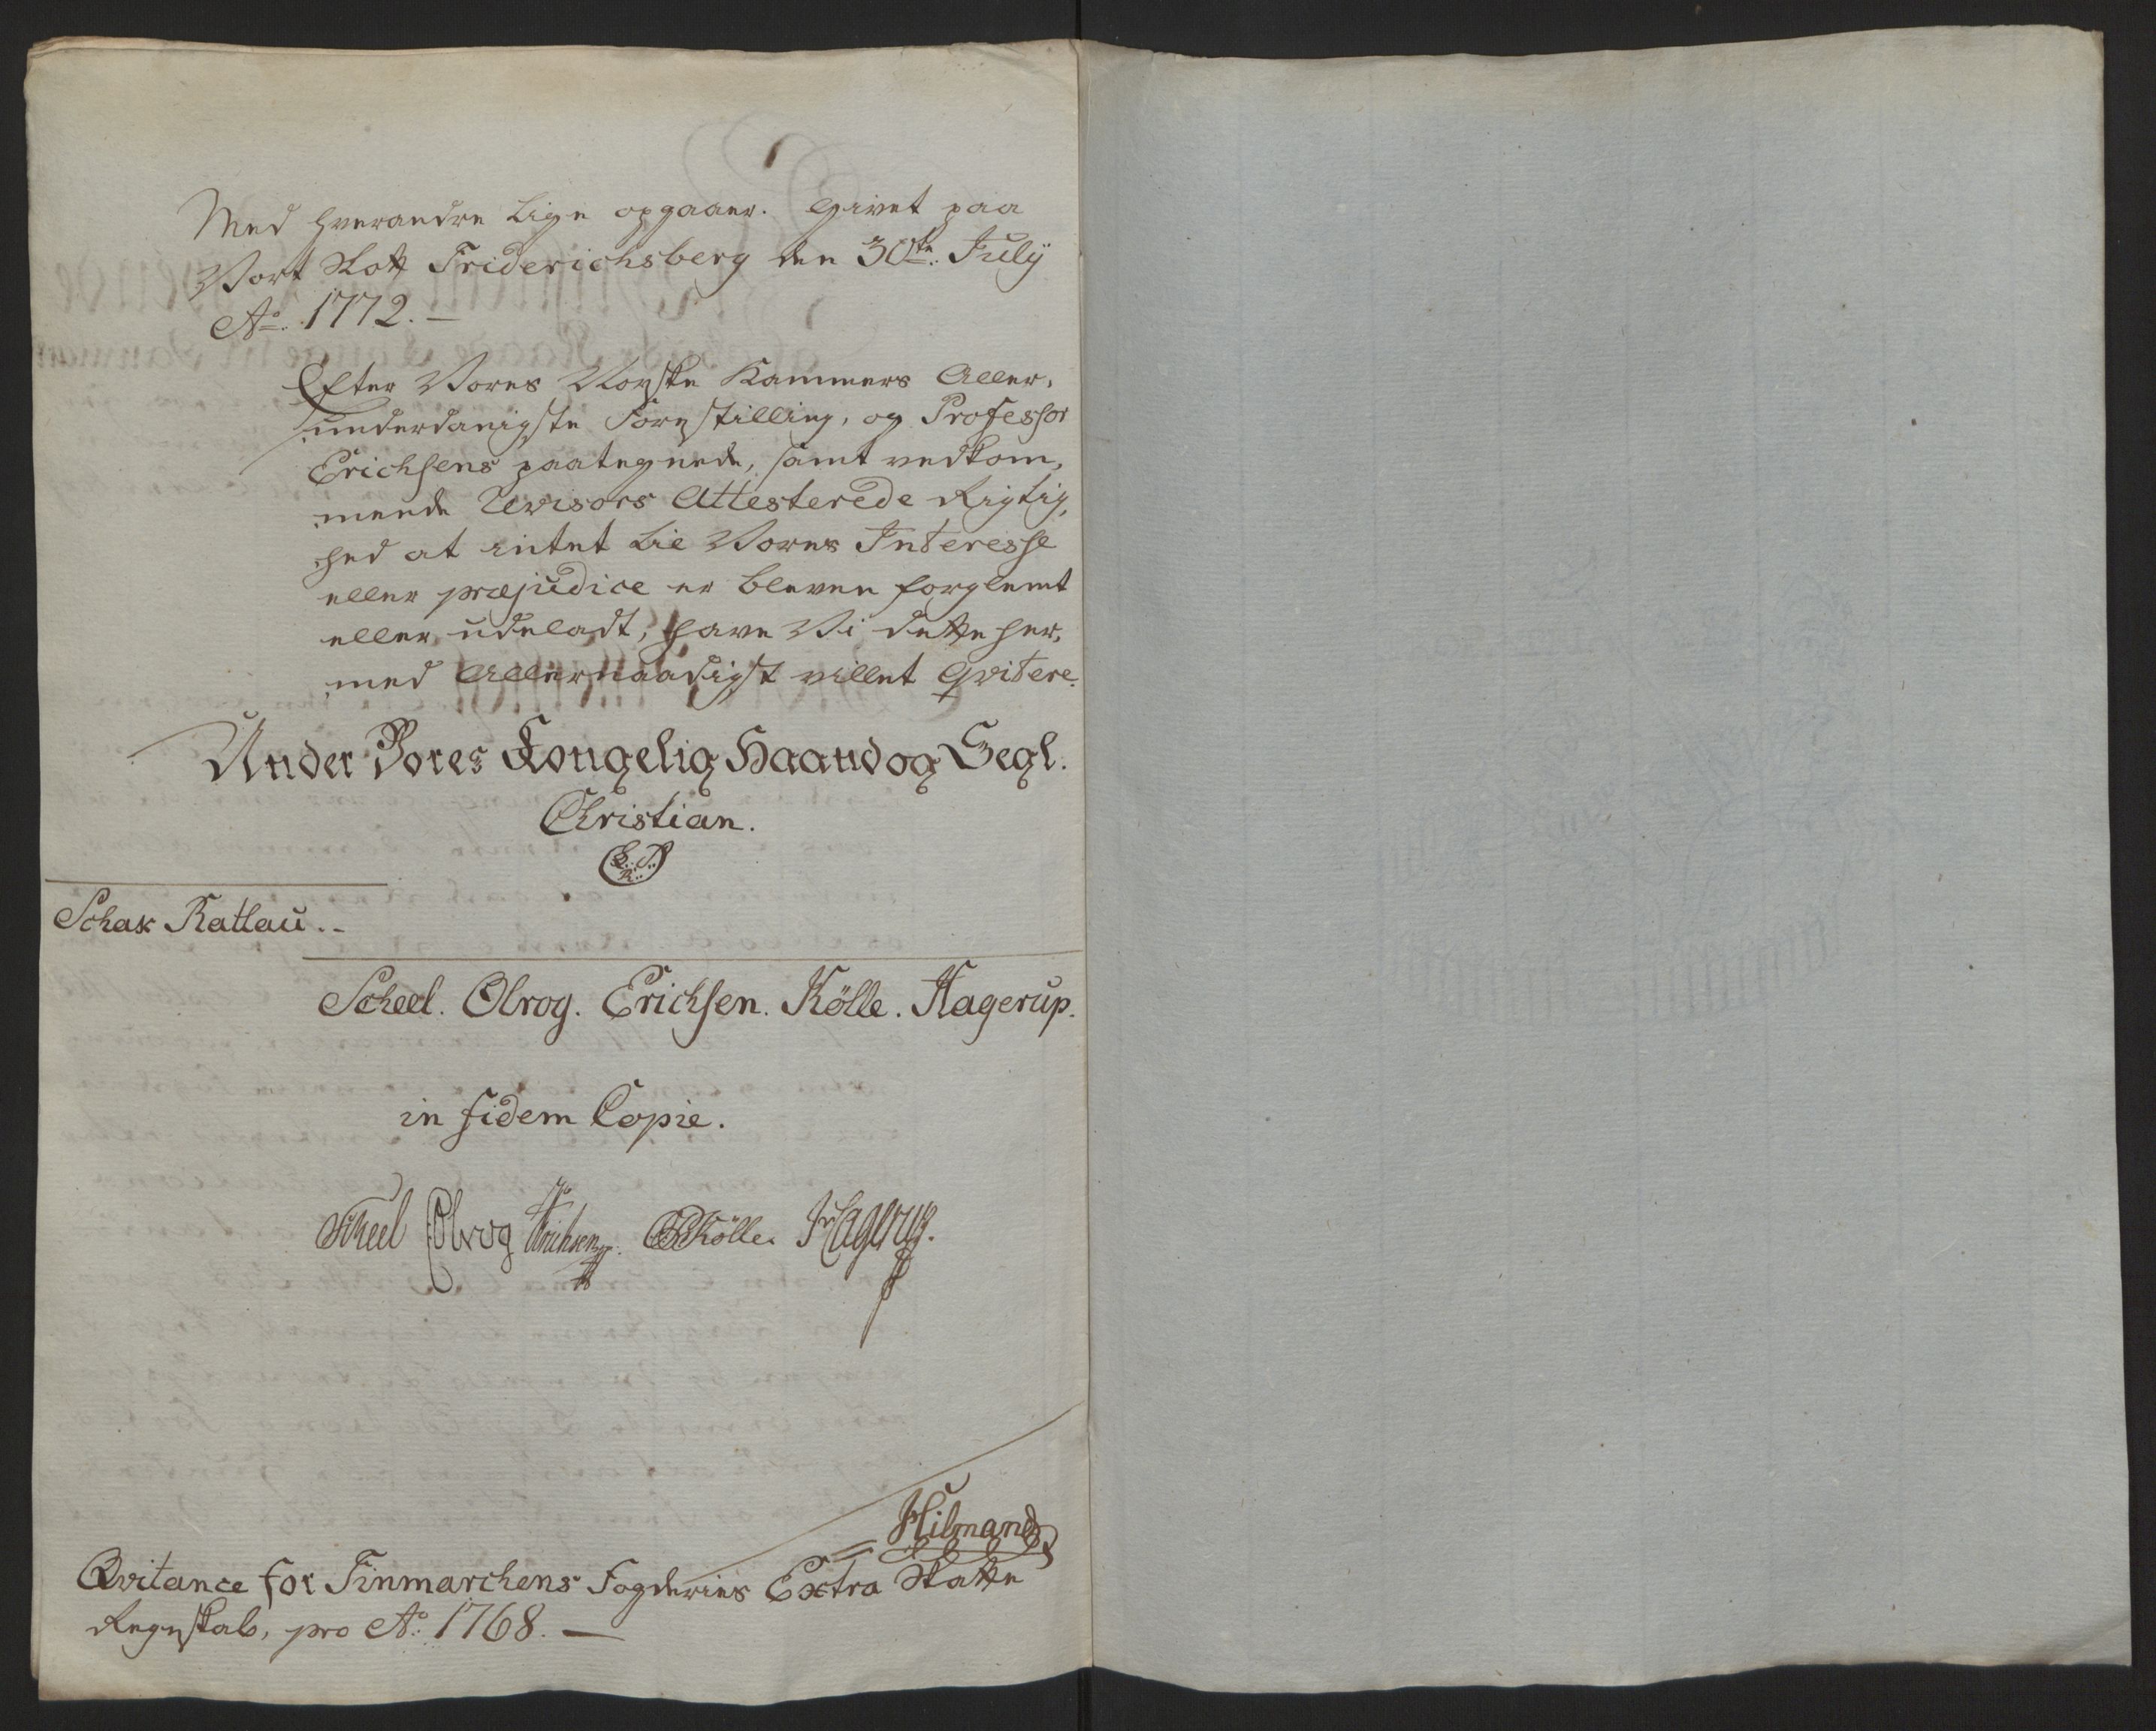 Med hverandre lige opgaaer. Givet paa
Vort Slott Friderichsberg den 30te. Julÿ
Ao. 1772. —
Efter Vores Norske Kammers Aller,
underdanigste Forestilling, og Professor
Erichsens paategnede, samt vedkom,
mende Revisors Attesterede Rigtig,
hed at intet til Vores Interesse
eller præjudice er bleven forglemt
eller udeladt, have Vi dette her,
med Allernaadigst villet Qvitere.
Under Vores Kongelig Haand og Segl.
Christian.
Schak Ratlau. -
Scheel. Olrog. Erichsen. Kölle. Hagerup.
in fidem Copie.
Scheel Olrog Erichsen Kölle. Hagerup.
Hilmand
Qvitance for Finmarchens Fogderies Extra Skatte
Regnskab, pro Ao. 1768. —